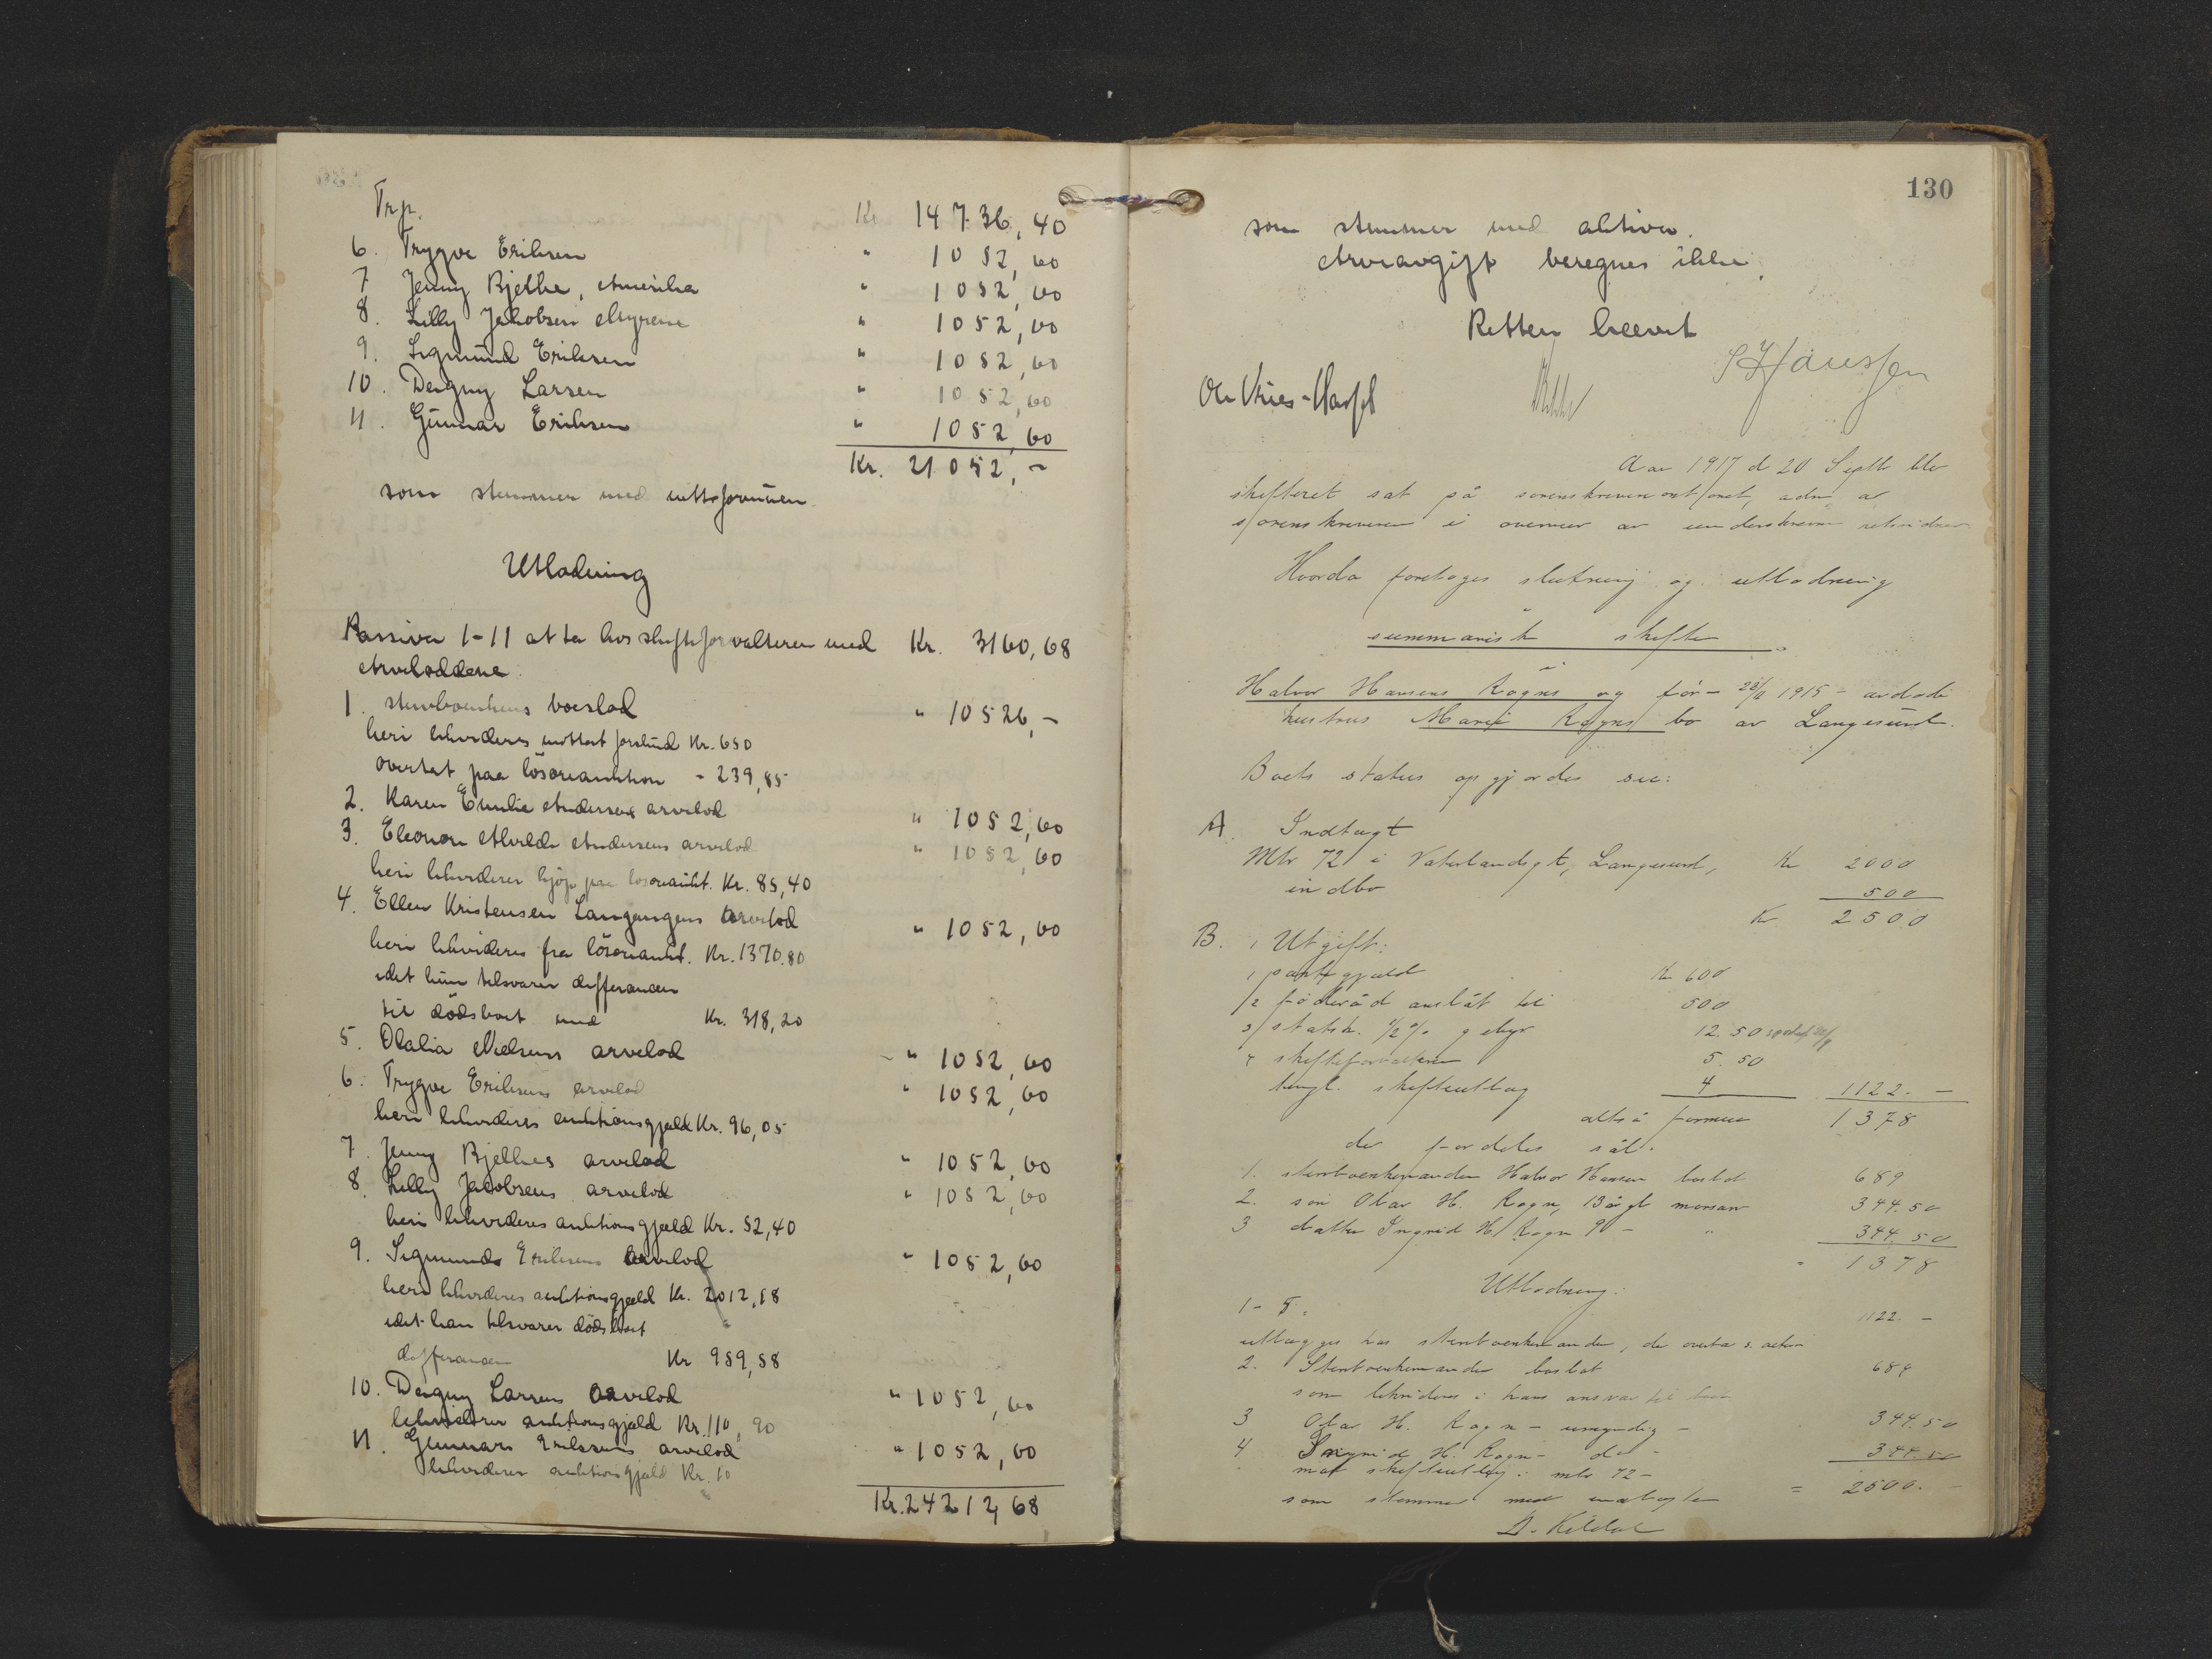 Trp. Kr. 14736,40
6. Trygve Eriksen " 1052,60
7 Jenny Bjelke, Amerika " 1052,60
8. Lilly Jakobsen Myrene " 1052,60
9. Sigmund Eriksen " 1052,60
10. Dagny Larsen " 1052,60
11. Gunnar Eriksen " 1052,60
Kr. 21052,-
som stemmer med nettoformuen.
Utlodning
Passiva 1-11 at ta hos skifteforvalteren med Kr. 3160,68
Arveloddene:
1. Stervboenkens boeslod " 10526,-
heri likvideres mottat forskud Kr. 650
overtat paa lösöreauktion - 239,85
2. Karen Emilie Andersens arvelod " 1052,60
3. Eleonore Alvilde Andersens arvelod " 1052,60
heri likviderer kjøp paa løsøreaukt. Kr. 85,40
4. Ellen Kristensen Langangens arvelod " 1052,60
heri likvideres fra lösöreaukt. Kr. 1370.80
idet hun tilsvarer differancen
til dödsboet med Kr. 318,20
5. Olalia Nielsens arvelod " 1052,60
6. Trygve Eriksens arvelod " 1052,60
heri likvideres auktionsgjæld Kr. 96,05
7. Jenny Bjelkes arvelod " 1052,60
8. Lilly Jacobsens arvelod " 1052,60
heri likvideres auktionsgjæld Kr. 52,40
9. Sigmunds Eriksens arvelod " 1052,60
heri likvideres auktionsgjæld Kr. 2012,18
idet han tilsvarer dödsboet
differancen Kr 959,58
10. Dagny Larsens arvelod " 1052,60
likviderer auktionsgjæld Kr. 110,90
11. Gunnars Eriksens arvelod " 1052,60
likviderer auktionsgjæld Kr. 10
Kr. 24212,68
130
som stemmer med aktiva.
Arveavgift beregnes ikke.
Retten hævet
S H Hanssen
Aar 1917 d 20 Septb blev
skifteret sat på sorenskriverkontoret, adm av
sorenskriveren i overvær av underskrevne retsvidner
Hvorda foretoges slutning og utlodning
summarisk skifte
Halvor Hansens Rogns og før - 23/11 1915 - avdøde
hustrus Marie Rogns bo av Langesund.
Boets status opgjordes sål:
A. Indtægt
Mtr 72 i Vaterlandsgt, Langesund, Kr 2000
indbo 500
Kr 2500
B. Utgift:
1 pantgjæld Kr 600
2 föderåd anslåt til 500
3 statsk. 1/2 % gebyr 12.50
4 skifteforvalteren 5.50
tingl. skifteutlæg 4 1122.-
altså formue 1378
der fordeles sål.
1. stervboenkemanden Halvor Hansen boslod 689
2. søn Olav H. Rogn, 13 årgl morsarv 344.50
3 datter Ingrid H. Rogn 9 - " 344.50
1378
Utlodning:
1-5. 1122.-
utlægges hos stervboenkemanden, der overtar s. aktiv
2. Stervboenkemanden boslod 689
som likvideres i hans ansvar til boet
3 Olav H. Rogn - umyndig - 344.50
4 Ingrid H. Rogn - do - 344.50
mot skifteutlæg i mtr 72 -
som stemmer med indtægten = 2500.-